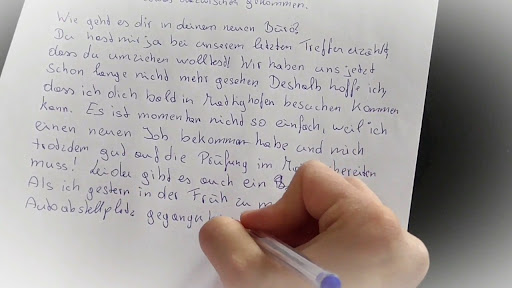 dazwischen gekommen.
Wie geht es dir in deinem neuen Büro?
Du hast mir ja bei unserem letzten Treffen erzählt,
dass du umziehen wolltest! Wir haben uns jetzt
schon lange nicht mehr gesehen Deshalb hoffe ich,
dass ich dich bald in Mattighofen besuchen kommen
kann. Es ist momentan nicht so einfach, weil ich
einen neuen Job bekommen habe und mich
trotzdem gut auf die Prüfung im bereiten
muss! Leider gibt es auch ein
Als ich gestern in der Früh zu m
Autoabstellplatz gegangen